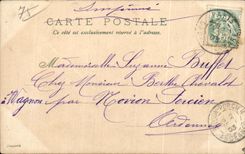 Imprimé
CARTE POSTALE
Ce côté est exclusivement réservé à l'adresse.
Mademoiselle Suzanne Buffet
Chez Monsieur Berthe Chevalot
à Wagnon par Novion Porcien
Ardennes